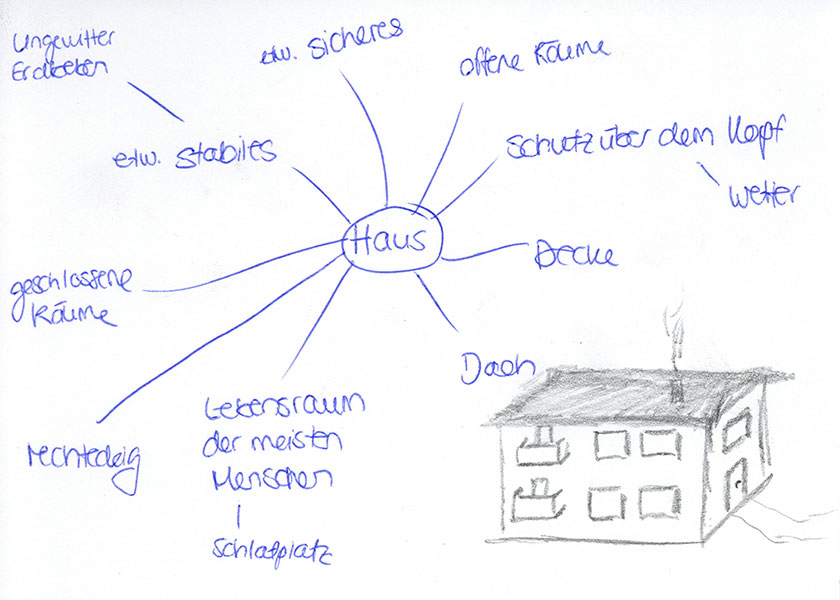 Ungewitter
Erdbeben
etw. sicheres
offene Räume
etw. stabiles
Schutz über dem Kopf
Wetter
Haus
Decke
geschlossene
Räume
Dach
Lebensraum
der meisten
Menschen
rechteckig
Schlafplatz